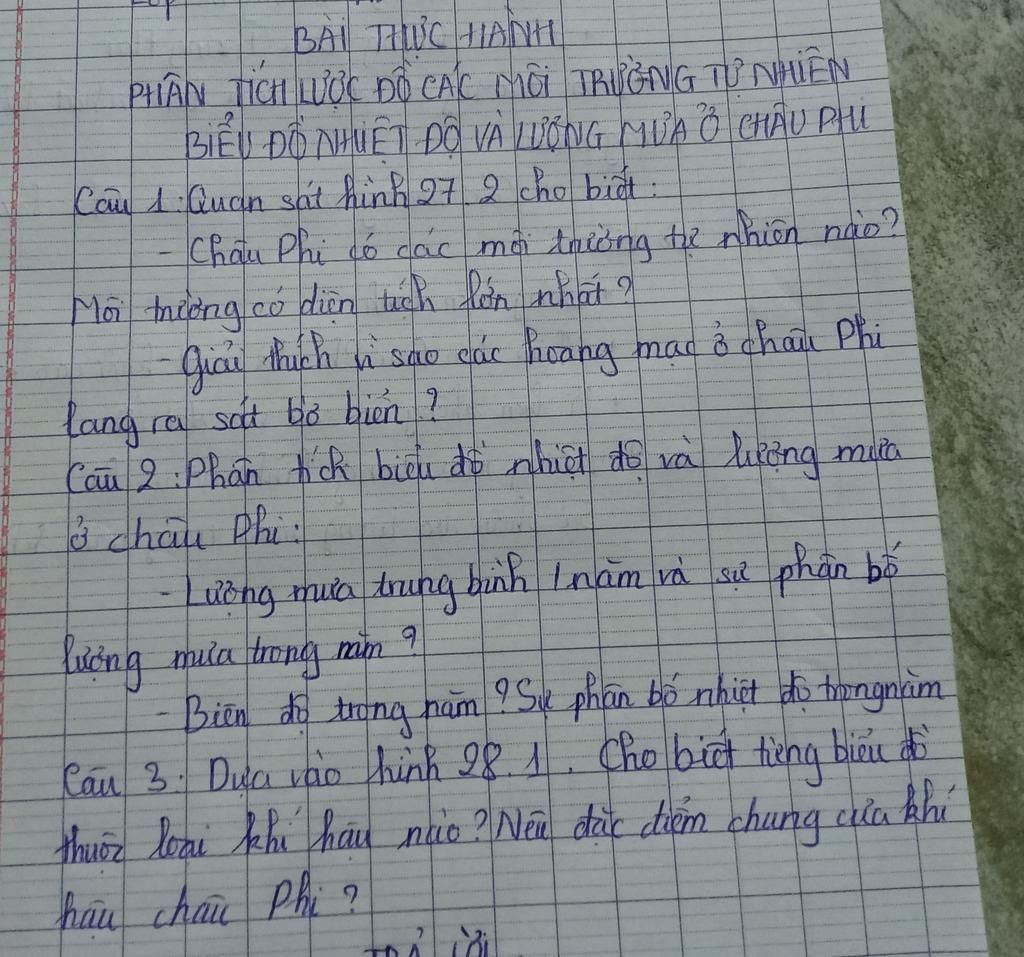 BÀI THỰC HÀNH
PHÂN TÍCH LƯỢC ĐỒ CÁC MÔI TRƯỜNG TỰ NHIÊN
BIỂU ĐỒ NHIỆT ĐỘ VÀ LƯỢNG MƯA Ở CHÂU PHI
Câu 1: Quan sát hình 27.2 cho biết:
- Châu Phi có các môi trường tự nhiên nào?
Môi trường có diện tích lớn nhất?
- Giải thích vì sao các hoang mạc ở châu Phi
lang ra sát bờ biển?
Câu 2: Phân tích biểu đồ nhiệt độ và lượng mưa
ở châu Phi:
- Lượng mưa trung bình 1 năm và sự phân bố
lượng mưa trong năm?
- Biên độ trong năm? Sự phân bố nhiệt độ trong năm
Câu 3: Dựa vào hình 28.1. Cho biết từng biểu đồ
thuộc loại khí hậu nào? Nêu đặc điểm chung của khí
hậu châu Phi?
TRẢ LỜI